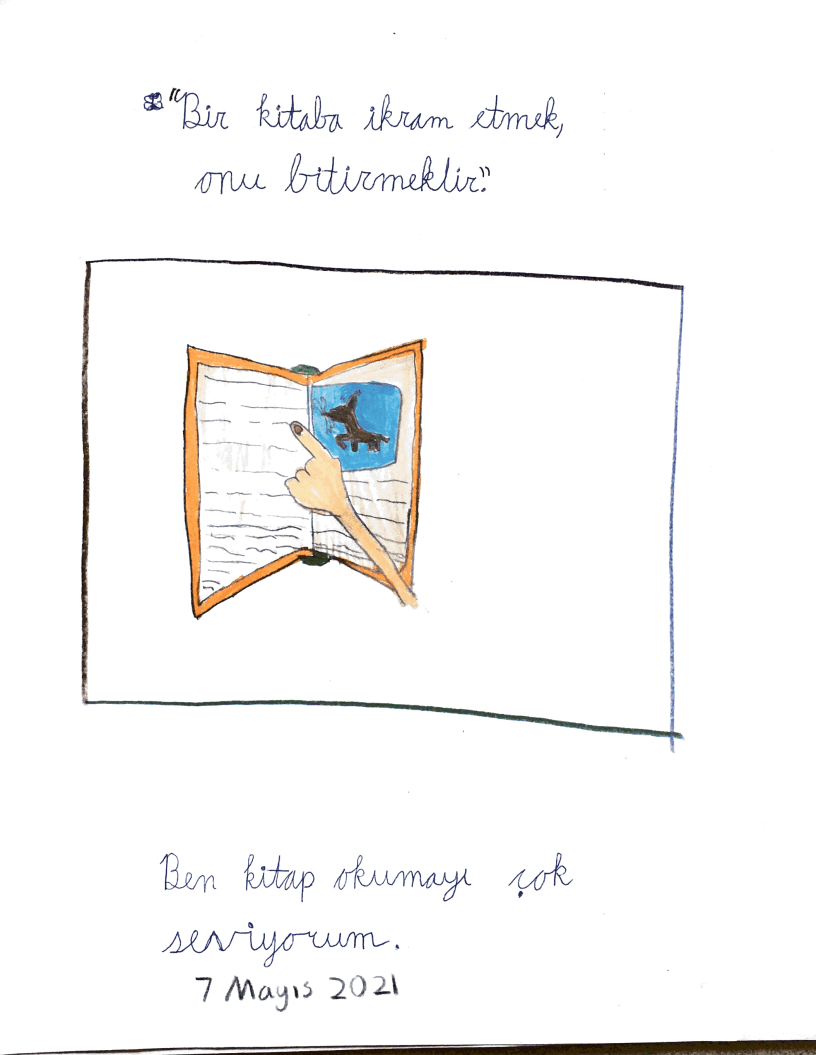 "Bir kitaba ikram etmek,
onu bitirmeklir."
Ben kitap okumayı çok
seviyorum.
7 Mayıs 2021